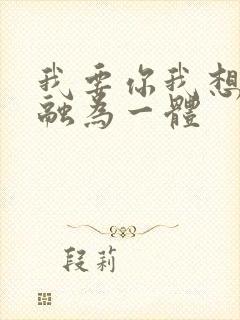 我要你我想
融為一體
段莉